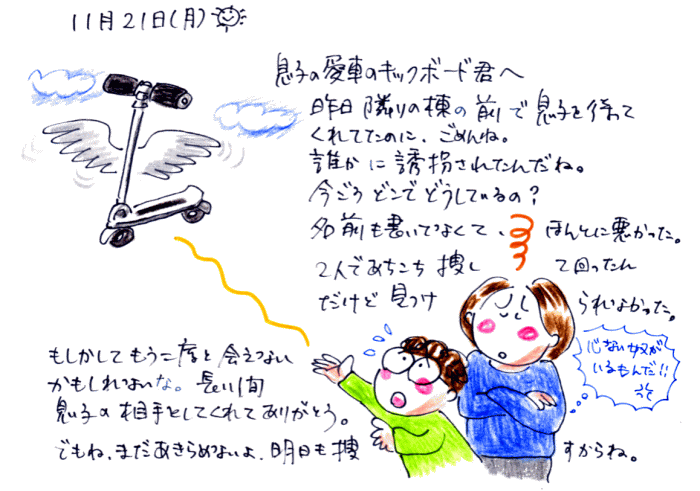 11月21日(月)
息子の愛車のキックボード君へ
昨日隣りの棟の前で息子を待って
くれてたのに、ごめんね。
誰かに誘拐されたんだね。
今ごろどこでどうしているの?
名前も書いてなくて、ほんとに悪かった。
2人であちこち捜して回ったんだ
だけど見つけられなかった。
心ない奴が
いるもんだ!!
もしかしてもう二度と会えない
かもしれないな。長い間
息子の相手をしてくれてありがとう。
でもね、まだあきらめないよ、明日も捜すからね。